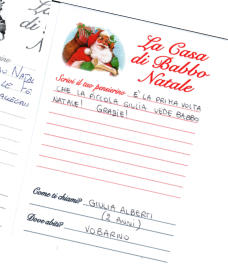 La Casa
di Babbo
Natale
Scrivi il tuo pensierino È LA PRIMA VOLTA
CHE LA PICCOLA GIULIA VEDE BABBO
NATALE! GRAZIE!
Come ti chiami? GIULIA ALBERTI
(2 ANNI)
Dove abiti? VOBARNO